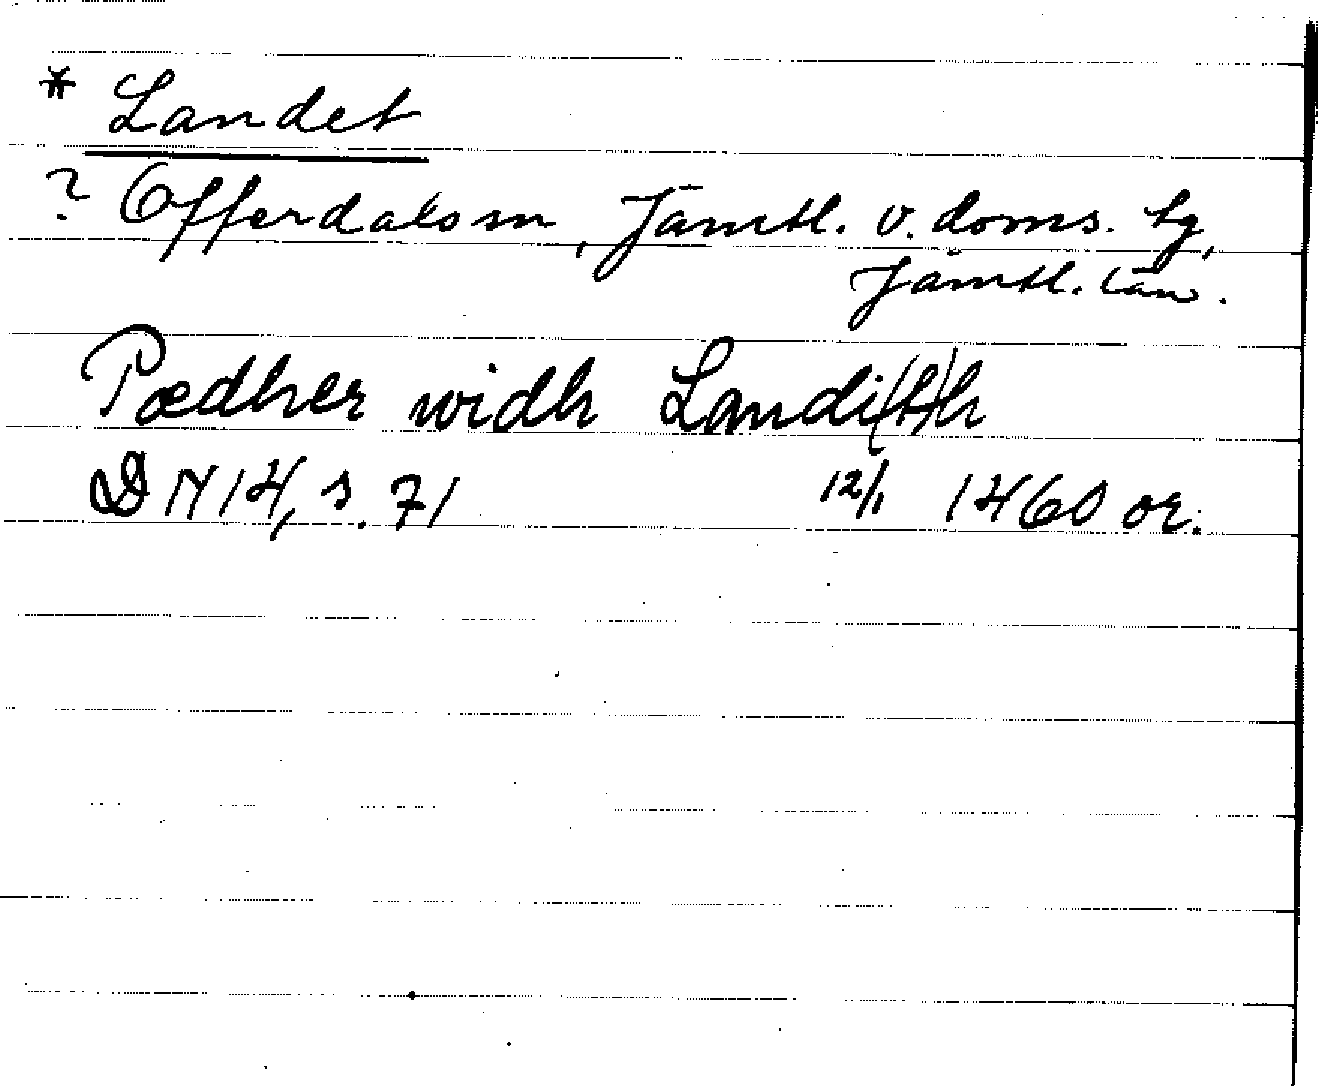 * Landet
? Offerdals sn, Jämtl. v. doms. tg,
Jämtl. län.
Pædher widh Landi(t)h
DN 14, s. 71 12/1 1460 or.